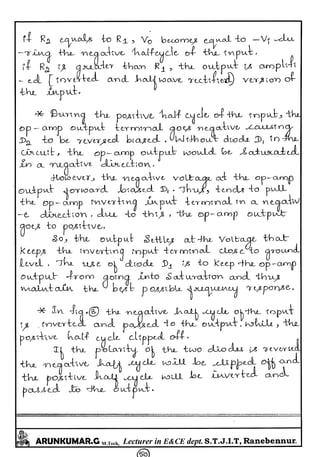 if R2 equals to R1, Vo becomes equal to -Vi du
-ring the negative halfcycle of the input.
if R2 is greater than R1, the output is amplifi
- ed [inverted and half wave rectified) version of
the input.
* During the positive half cycle of the input, the
op-amp output terminal goes negative causing
D2 to be reversed biased. Without diode D1 in the
circuit, the op-amp output would be saturated
in a negative direction.
However, the negative voltage at the op-amp
output forward biased D1. Thus, tends to pull
the op-amp inverting input terminal in a negativ
-e direction. due to this, the op-amp output
goes to positive.
So, the output settles at the voltage that
keeps the inverting input terminal close to ground
level. The use of diode D1 is to keep the op-amp
output from going into saturation and thus
maintain the best possible frequency response.
* In fig. the negative half cycle of the input
is inverted and passed to the output. while, the
positive half cycle clipped off.
If the polarity of the two diodes is reversed
the negative half cycle will be clipped off and
the positive half cycle will be inverted and
passed to the output.
ARUNKUMAR.G M.Tech, Lecturer in E&CE dept. S.T.J.I.T, Ranebennur.